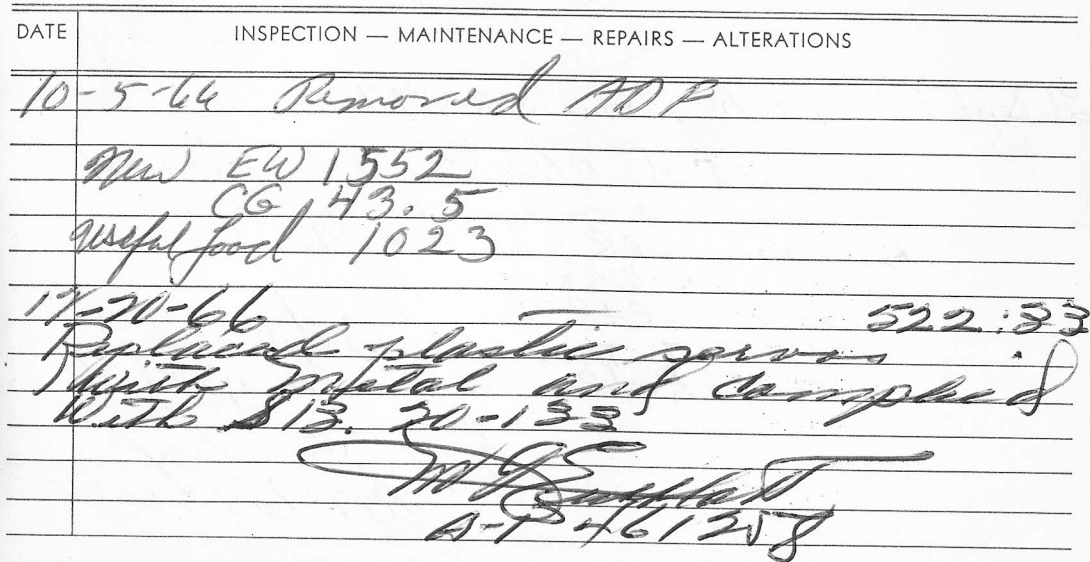 DATE INSPECTION — MAINTENANCE — REPAIRS — ALTERATIONS
10-5-66 Removed ADF
New EW 1552
CG 43.5
useful load 1023
-20-66 522:33
Replaced plastic servos
with metal and complied
With 20-133
A-P 461258